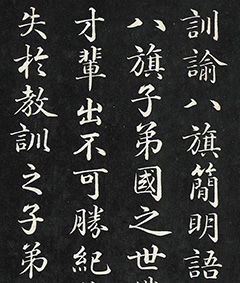 訓諭八旗簡明語
八旗子弟國之世
才輩出不可勝紀
失於教訓之子弟